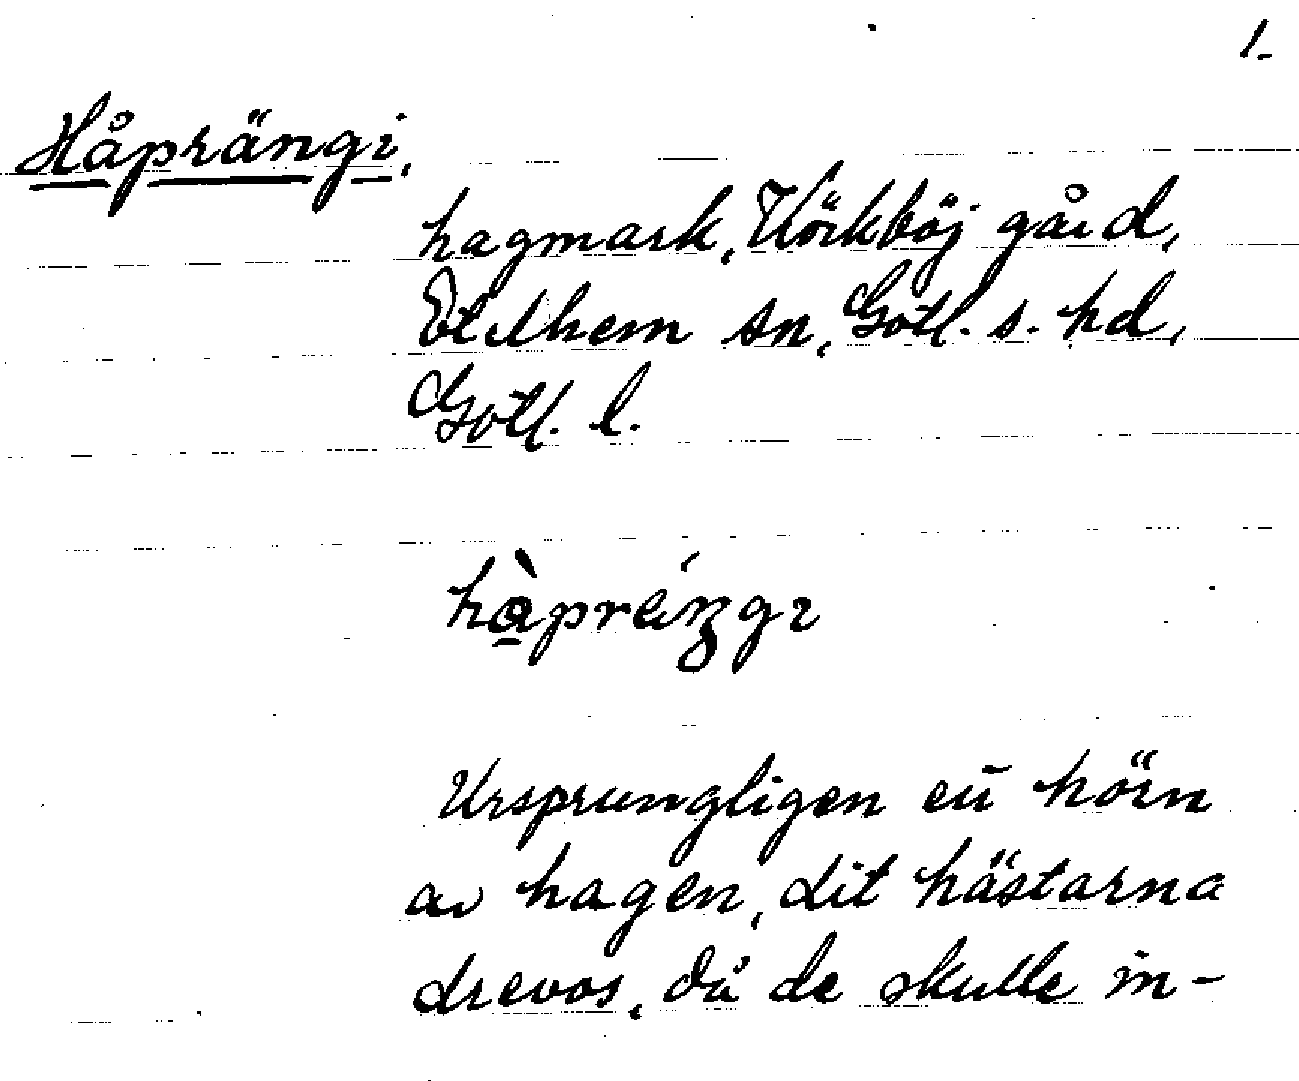 1.
Håprängi,
hagmark, Körkböj gård,
Etelhem sn, Gotl. s. hd,
Gotl. l.
Ursprungligen ett hörn
av hagen, dit hästarna
drevos, då de skulle in-